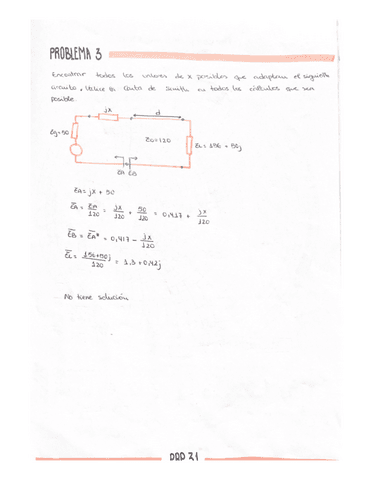 PROBLEMA 3
Encontrar todos los valores de x posibles que adapten el siguiente
circuito. Utilice la Carta de Smith en todos los cálculos que sea
posible.
jx
d
Zg=50
Z0=120
ZL = 156 + 50j
ZA ZB
ZA = jX + 50
ZA = ZA/120 = jX/120 + 50/120 = 0,417 + jX/120
ZB = ZA* = 0,417 - jX/120
ZL = 156+50j/120 = 1,3 + 0,42j
No tiene solución